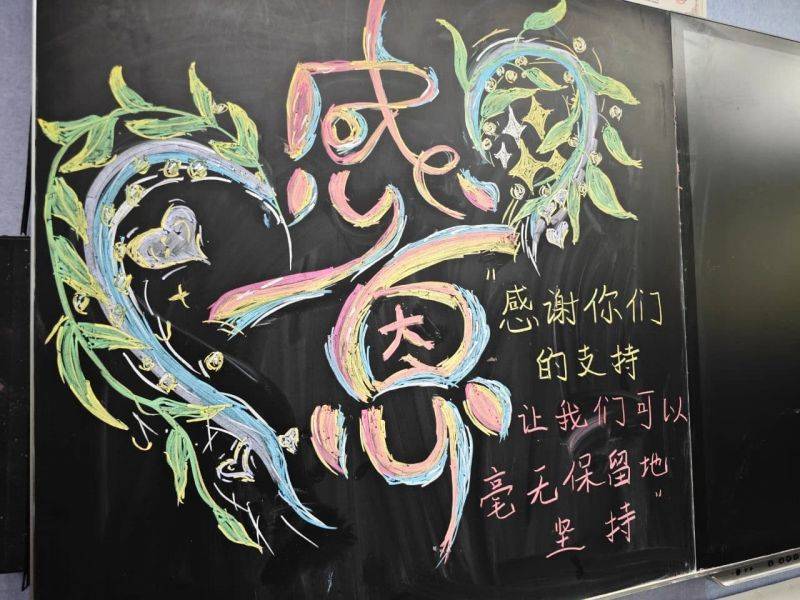 感恩
"感谢你们
的支持
让我们可以
毫无保留地
坚持"